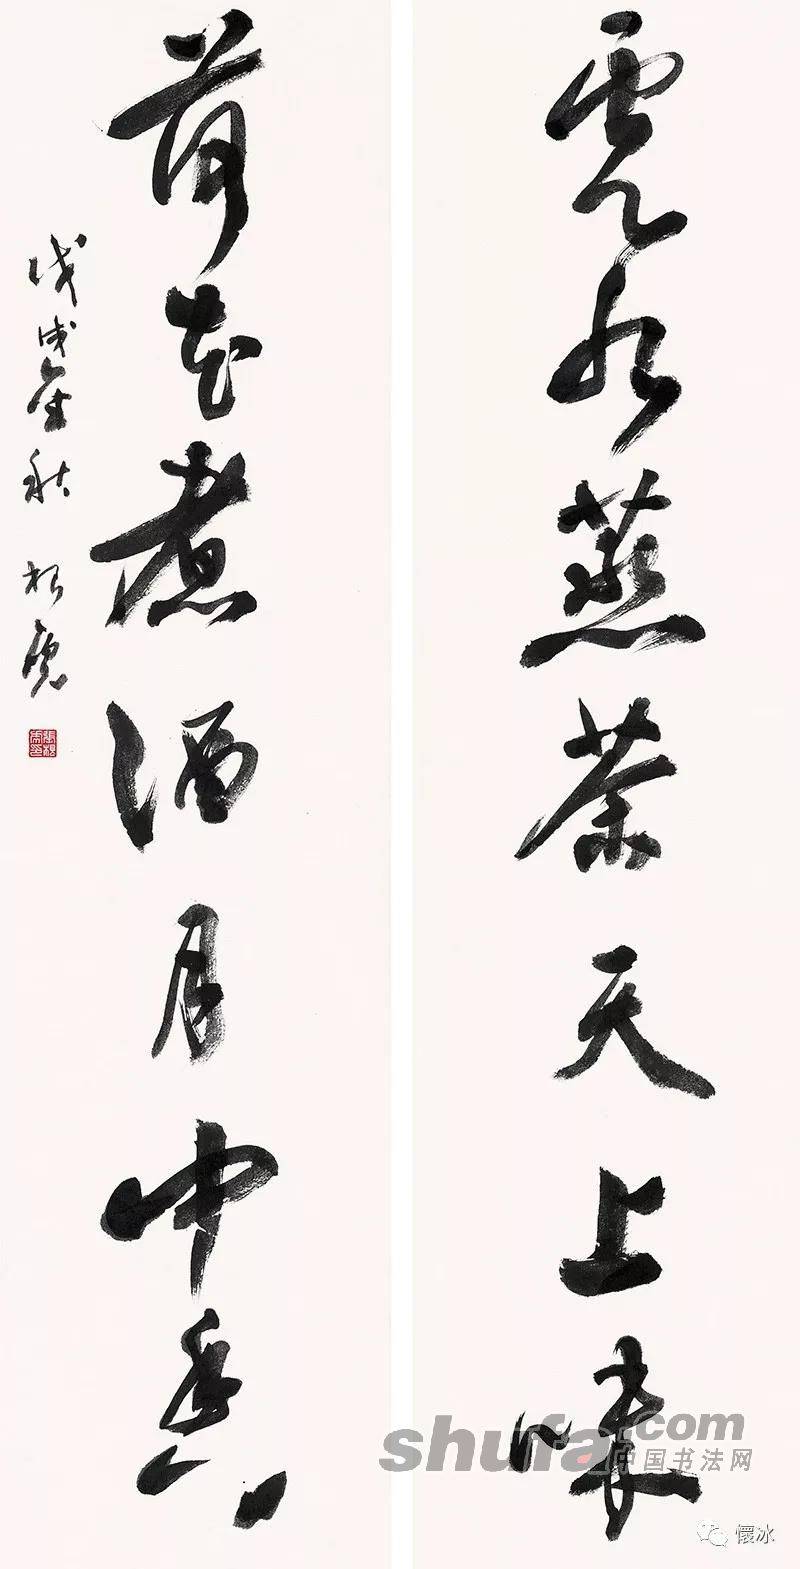 雲水蒸茶天上味
荷花煮酒月中香
戊戌金秋
shufa.com
中国书法网
懷冰